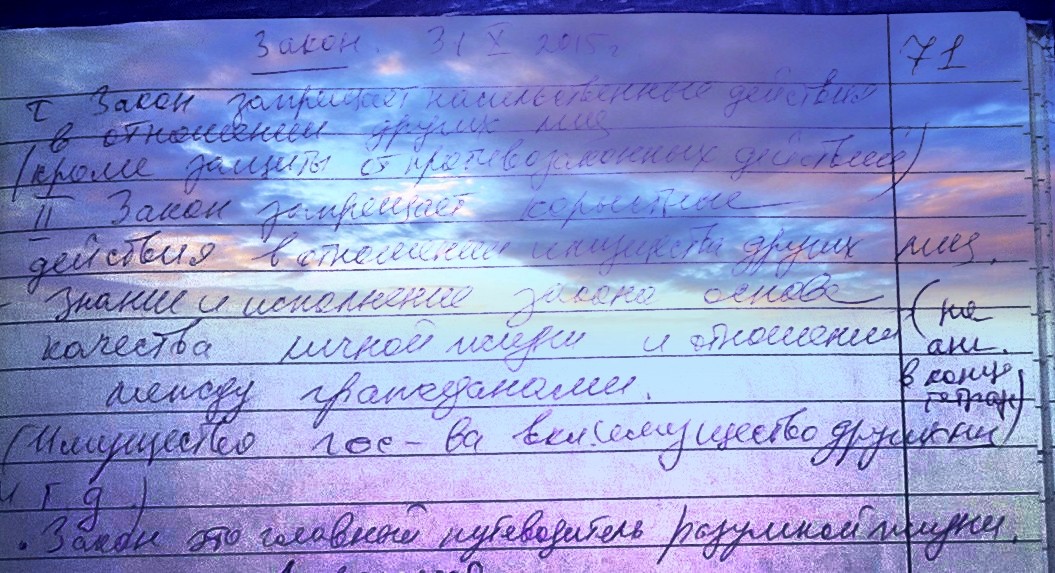 Закон. 31 X 2015г
71
I Закон запрещает насильственные действия
в отношении других лиц
(кроме защиты от противозаконных действий)
II Закон запрещает корыстные
действия в отношении имущества других лиц.
- знание и исполнение закона основа
качества личной жизни и отношений
между гражданами.
(на
анг.
в конце
тетради)
(Имущество гос-ва вкл. имущество
и т д.)
. Закон это главный путеводитель разумной жизни.